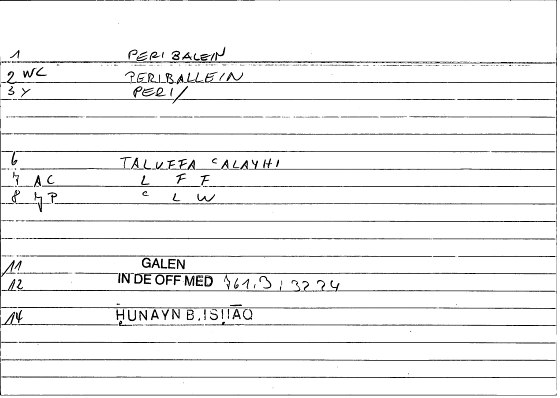 1 PERIBALEIN
2 WC PERIBALLEIN
3 Y PERI/
6 TALUFFA ʿALAYHI
7 AC L F F
8 P ʿ L W
11 GALEN
12 IN DE OFF MED
14 ḤUNAYN B. ISḤĀQ